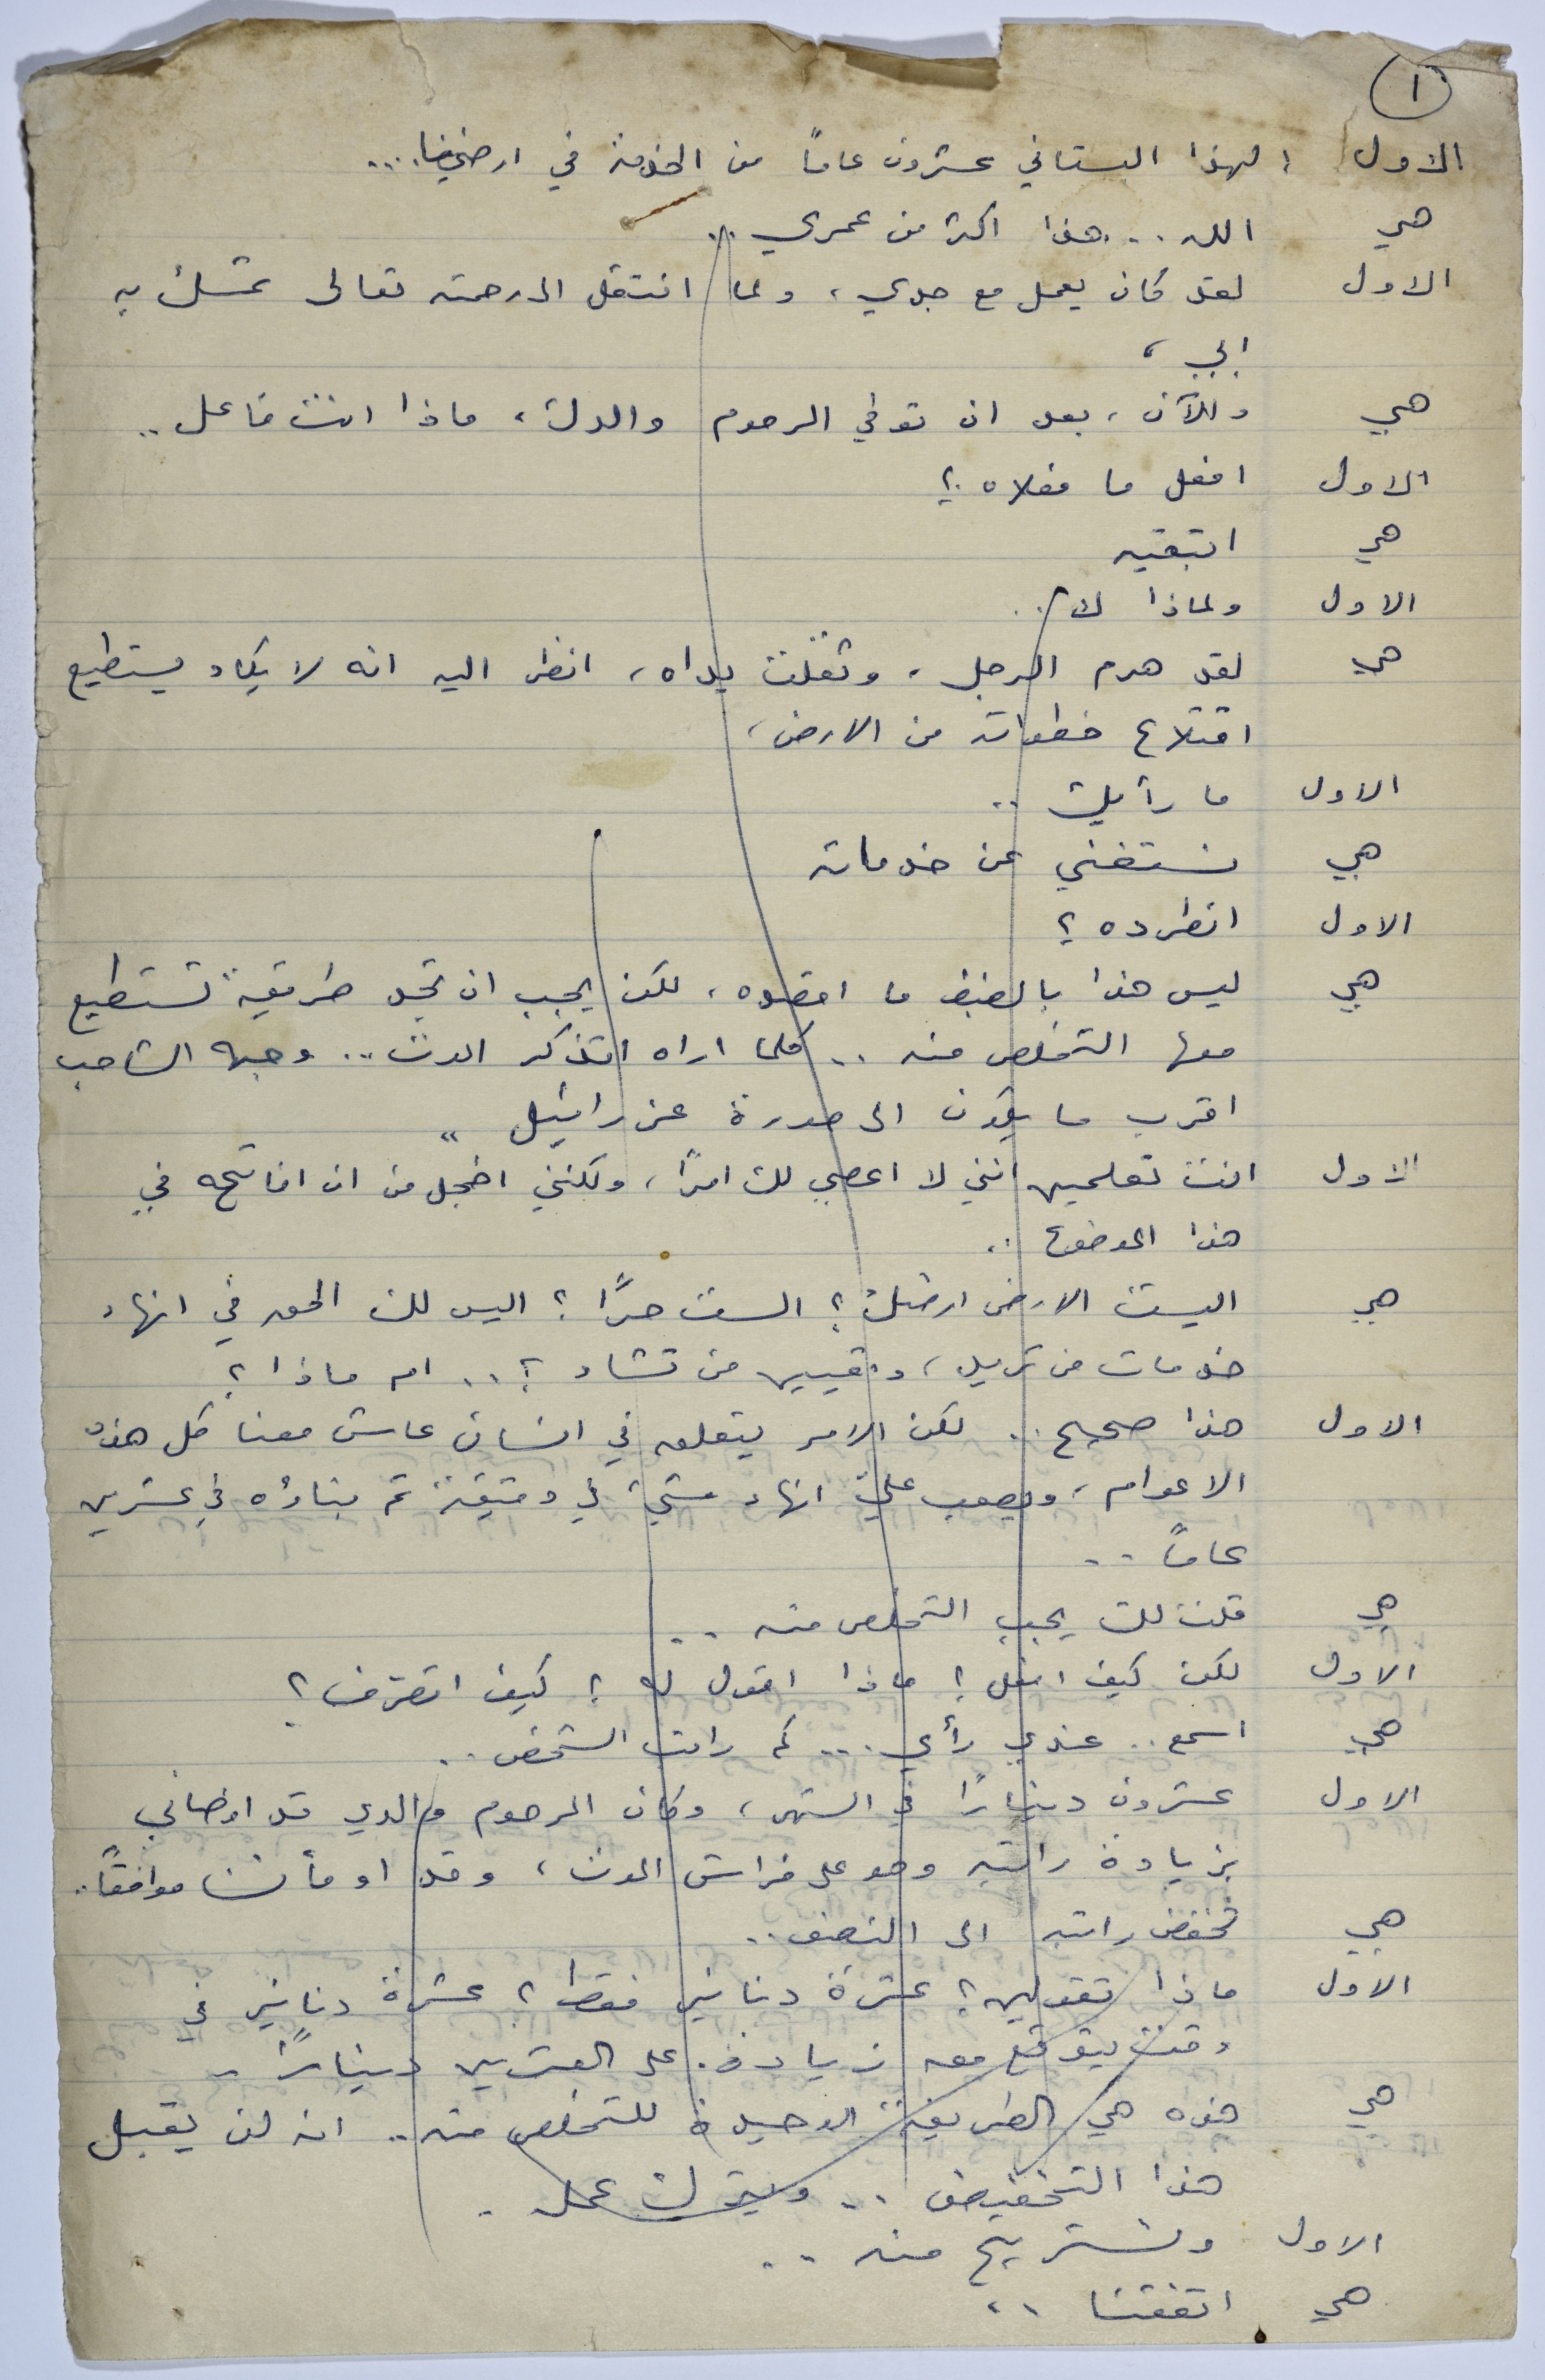 ١
الاول : لهذا البستاني عشرون عاماً من الخدمة في ارضنا...
هي الله... هذا اكثر من عمري..
الاول لقد كان يعمل مع جدي، ولما انتقل الى رحمته تعالى تمسك به
ابي،
هي والآن، بعد ان توفي المرحوم والدك، ماذا انت فاعل..
الاول افعل ما فعلاه؟
هي اتبقيه
الاول ولماذا لا..
هي لقد هرم الرجل، وثقلت يداه، انظر اليه انه لا يكاد يستطيع
اقتلاع خطواته من الارض،
الاول ما رأيك..
هي نستغني عن خدماته
الاول انطرده؟
هي ليس هذا بالضبط ما اقصده، لكن يجب ان تجد طريقة تستطيع
معها التخلص منه.. كلما اراه اتذكر الموت.. وجهه الشاحب
اقرب ما يكون الى صورة عزرائيل..
الاول انت تعلمين انني لا اعصي لك امراً، ولكنني اخجل من ان افاتحه في
هذا الموضوع..
هي اليست الارض ارضك؟ الست حراً؟ اليس لك الحق في انهاء
خدمات من تريد، وتعيين من تشاء؟.. ام ماذا؟
الاول هذا صحيح.. لكن الامر يتعلق في انسان عاش معنا كل هذه
الاعوام، ويصعب عليّ انهاء شيء في دقيقة تم بناؤه في عشرين
عاماً..
هي قلت لك يجب التخلص منه..
الاول لكن كيف افعل؟ ماذا اقول له؟ كيف اتصرف؟
هي اسمع.. عندي رأي... كم راتب الشخص..
الاول عشرون ديناراً في الشهر، وكان المرحوم والدي قد اوصاني
بزيادة راتبه وهو على فراش الموت، وقد اومأت موافقاً..
هي تخفض راتبه الى النصف..
الاول ماذا تقولين؟ عشرة دنانير فقط؟ عشرة دنانير في
وقت يتوقع معه زيادة. على العشرين ديناراً..
هي هذه هي الطريقة الوحيدة للتخلص منه.. انه لن يقبل
هذا التخفيض.. ويترك عمله.
الاول ونستريح منه..
هي اتفقنا..